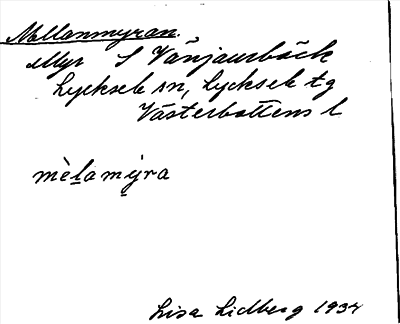 Mellanmyran.
Myr S Vänjaurbäck
Lycksele sn, Lycksele tg
Västerbottens l
mèlamýra
Lisa Lidberg 1934